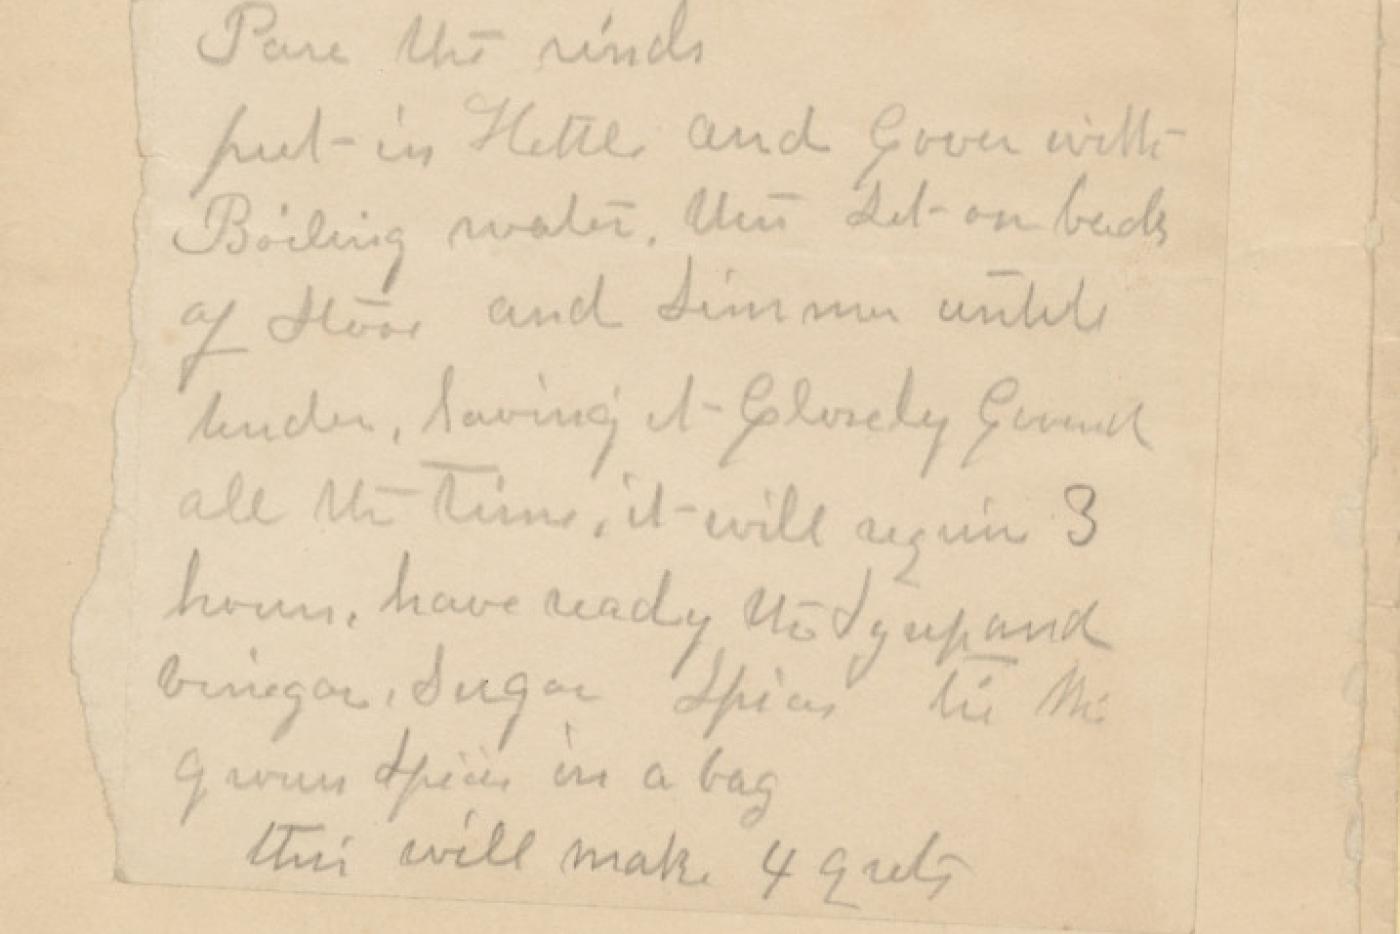 Pare the rinds
put in Kettle and Cover with
Boiling water, then set on back
of Stove and simmer untill
tender, having it Closely Coverd
all the time, it will requir 3
hours. have ready the Syrup and
vinegar, Sugar Spices tie the
groun Spices in a bag
this will make 4 qrts